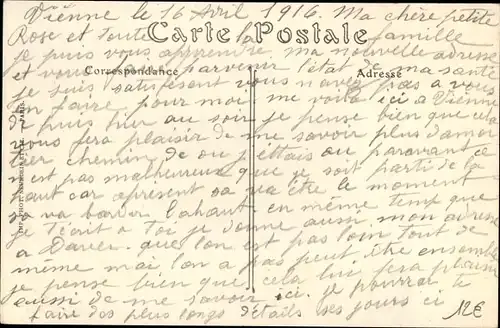 Vienne le 16 Avril 1916. Ma chère petite
Rose et toute la famille
Carte Postale
je puis vous apprendre ma nouvelle adresse
et vous parvenir l'état de ma santé
Correspondance
Adresse
je suis vous pas a vous
en faire pour moi me voila ici a Vienne
de puis hier au soir je pense bien que cela
vous fera plaisir de me savoir plus
chemin de ou j'ettais au paravant ce
n'est pas malheureux que je soit partie de la
haut car apresent sa va être le moment
sa va barder lahaut en même temp que
j'ecrit a toi je donne aussi mon adresse
a que l'on est pas loin de
meme mai l'on a pas peut être ensemble
je pense bien que cela lui fera plaisir
aussi de me savoir ici. Je pourrai te
faire des plus longs détails ses jours ci
12€